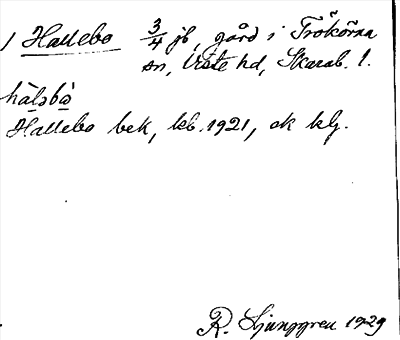 1 Hallebo 3/4 jb, gård i Trökörna
sn, Viste hd, Skarab. l.
hàlsbò
Hallebo bek, kb. 1921, ok klg.
R. Ljunggren 1929